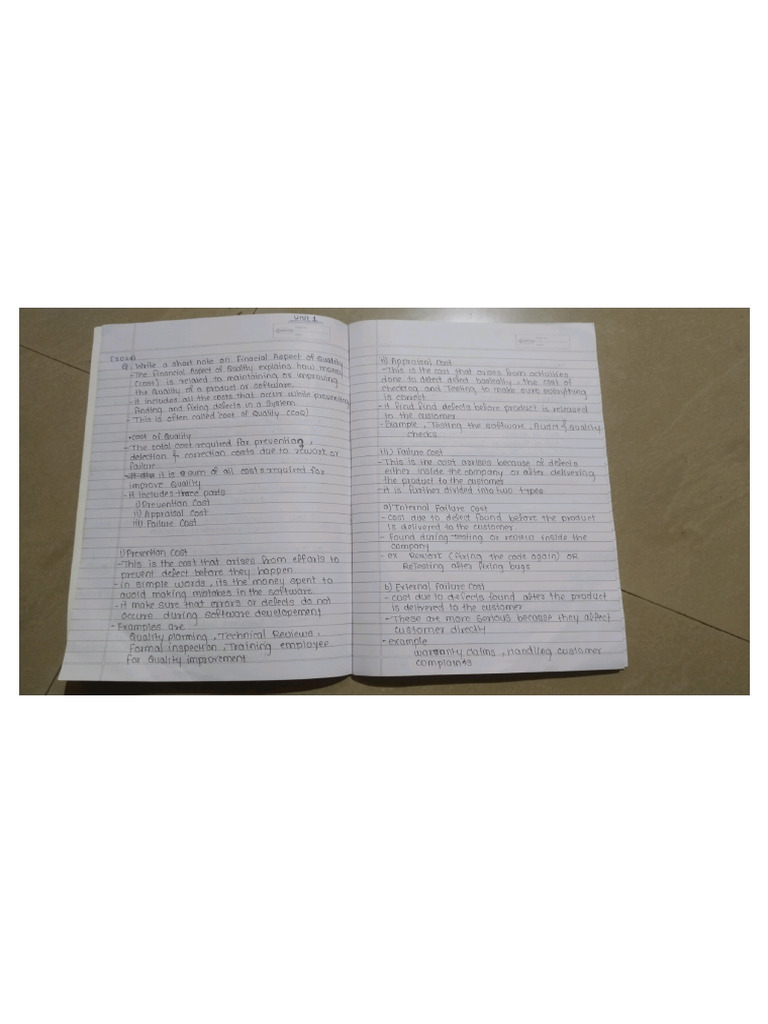 Unit 1
(2024)
Q. Write a short note on Finacial Aspect of Quality
- The Financial Aspect of Quality explains how money
(cost) is related to maintaining or improving
the Quality of a product or software.
- It includes all the costs that occur while preventing
finding and fixing defects in a system
- This is often called cost of Quality (COQ)
• Cost of Quality
- The total cost required for preventing,
detection & correction costs due to rework or
failure.
it is a sum of all costs required for
improve Quality
- It includes three parts
i) Prevention Cost
ii) Appraisal Cost
iii) Failure Cost
i) Prevention Cost
- This is the cost that arises from efforts to
prevent defect before they happen.
- in simple words, its the money spent to
avoid making mistakes in the software.
- it make sure that errors or defects do not
occure during software developement
- Examples are
Quality planning, Technical Reviews,
Formal inspection, Training employee
for Quality improvement
ii) Appraisal Cost
- This is the cost that arises from activities
done to detect basically, the cost of
checking and Testing to make sure everything
is correct
- It find defects before product is released
to the customer
- Example, Testing the software, Audit & quality
checks
iii) Failure Cost
- This is the cost arises because of defects
either inside the company or after delivering
the product to the customer
- it is further divided into two types
a) Internal Failure Cost
- Cost due to defect found before the product
is delivered to the customer.
- Found during testing or review inside the
company
- ex Rework (fixing the code again) OR
ReTesting after fixing bugs
b) External Failure Cost
- cost due to defects found after the product
is delivered to the customer
- These are more serious because they affect
customer directly
- example
warranty claims, Handling customer
complaints